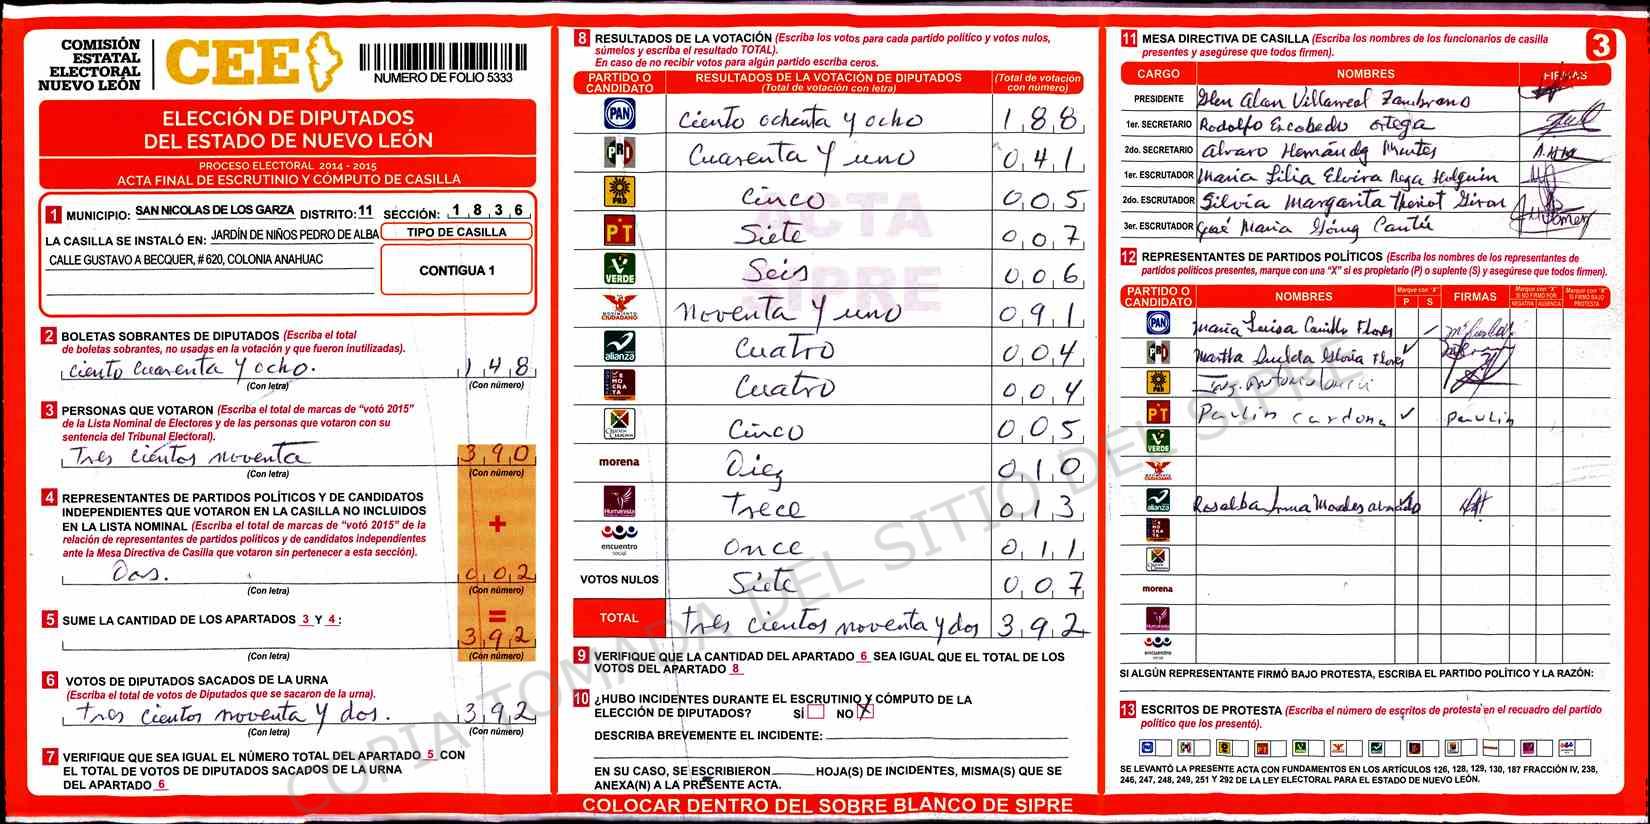 COMISIÓN
ESTATAL
ELECTORAL
NUEVO LEÓN
CEE
NUMERO DE FOLIO 5333
ELECCIÓN DE DIPUTADOS
DEL ESTADO DE NUEVO LEÓN
PROCESO ELECTORAL 2014 - 2015
ACTA FINAL DE ESCRUTINIO Y CÓMPUTO DE CASILLA
1 MUNICIPIO: SAN NICOLAS DE LOS GARZA DISTRITO: 11 SECCIÓN: 1836
LA CASILLA SE INSTALÓ EN: JARDÍN DE NIÑOS PEDRO DE ALBA
TIPO DE CASILLA
CALLE GUSTAVO A BECQUER, # 620, COLONIA ANAHUAC
CONTIGUA 1
2 BOLETAS SOBRANTES DE DIPUTADOS (Escriba el total
de boletas sobrantes, no usadas en la votación y que fueron inutilizadas).
Ciento cuarenta y ocho. 148
(Con letra) (Con número)
3 PERSONAS QUE VOTARON (Escriba el total de marcas de “votó 2015”
de la Lista Nominal de Electores y de las personas que votaron con su
sentencia del Tribunal Electoral).
Tres cientos noventa 390
(Con letra) (Con número)
4 REPRESENTANTES DE PARTIDOS POLÍTICOS Y DE CANDIDATOS
INDEPENDIENTES QUE VOTARON EN LA CASILLA NO INCLUIDOS
EN LA LISTA NOMINAL (Escriba el total de marcas de “votó 2015” de la
relación de representantes de partidos políticos y de candidatos independientes
ante la Mesa Directiva de Casilla que votaron sin pertenecer a esta sección).
+
Dos. 002
(Con letra) (Con número)
5 SUME LA CANTIDAD DE LOS APARTADOS 3 Y 4: =
392
(Con letra) (Con número)
6 VOTOS DE DIPUTADOS SACADOS DE LA URNA
(Escriba el total de votos de Diputados que se sacaron de la urna).
tres cientos noventa y dos. 392
(Con letra) (Con número)
7 VERIFIQUE QUE SEA IGUAL EL NÚMERO TOTAL DEL APARTADO 5 CON
EL TOTAL DE VOTOS DE DIPUTADOS SACADOS DE LA URNA
DEL APARTADO 6
8 RESULTADOS DE LA VOTACIÓN (Escriba los votos para cada partido político y votos nulos,
súmelos y escriba el resultado TOTAL).
En caso de no recibir votos para algún partido escriba ceros.
PARTIDO O CANDIDATO RESULTADOS DE LA VOTACIÓN DE DIPUTADOS (Total de votación con letra) (Total de votación con número)
PAN Ciento ochenta y ocho 188
PRD Cuarenta y uno 041
PRD Cinco 005
PT Siete 007
VERDE Seis 006
MOVIMIENTO CIUDADANO Noventa y uno 091
alianza Cuatro 004
Cuatro 004
Cinco 005
morena Diez 010
Humanista Trece 013
encuentro social Once 011
VOTOS NULOS Siete 007
TOTAL tres cientos noventa y dos 392
ACTA
SIPRE
9 VERIFIQUE QUE LA CANTIDAD DEL APARTADO 6 SEA IGUAL QUE EL TOTAL DE LOS
VOTOS DEL APARTADO 8
10 ¿HUBO INCIDENTES DURANTE EL ESCRUTINIO Y CÓMPUTO DE LA
ELECCIÓN DE DIPUTADOS? SÍ NO X
DESCRIBA BREVEMENTE EL INCIDENTE:
EN SU CASO, SE ESCRIBIERON HOJA(S) DE INCIDENTES, MISMA(S) QUE SE
ANEXA(N) A LA PRESENTE ACTA.
11 MESA DIRECTIVA DE CASILLA (Escriba los nombres de los funcionarios de casilla
presentes y asegúrese que todos firmen).
3
CARGO NOMBRES FIRMAS
PRESIDENTE Glen Alan Villarreal Zambrano
1er. SECRETARIO Rodolfo Escobedo Ortega
2do. SECRETARIO Alvaro Hernández Montes
1er. ESCRUTADOR Maria Lilia Elvira Holguin
2do. ESCRUTADOR Silvia Margarita Theriot Giron
3er. ESCRUTADOR José Maria Gómez Cantú
12 REPRESENTANTES DE PARTIDOS POLÍTICOS (Escriba los nombres de los representantes de
partidos políticos presentes, marque con una “X” si es propietario (P) o suplente (S) y asegúrese que todos firmen).
PARTIDO O CANDIDATO NOMBRES Marque con “X” P S FIRMAS Marque con “X” SI NO FIRMÓ POR: NEGATIVA AUSENCIA Marque con “X” SI FIRMÓ BAJO PROTESTA
PAN Maria Luisa Flores
Martha Gloria Flores
PRD Ing. Antonio
PT Paulin Cardona Paulin
VERDE
alianza Rosalba Morales
morena
Humanista
encuentro social
SI ALGÚN REPRESENTANTE FIRMÓ BAJO PROTESTA, ESCRIBA EL PARTIDO POLÍTICO Y LA RAZÓN:
13 ESCRITOS DE PROTESTA (Escriba el número de escritos de protesta en el recuadro del partido
político que los presentó).
SE LEVANTÓ LA PRESENTE ACTA CON FUNDAMENTOS EN LOS ARTÍCULOS 126, 128, 129, 130, 187 FRACCIÓN IV, 238,
245, 247, 248, 249, 251 Y 292 DE LA LEY ELECTORAL PARA EL ESTADO DE NUEVO LEÓN.
COLOCAR DENTRO DEL SOBRE BLANCO DE SIPRE
COPIA TOMADA DEL SITIO DEL SIPRE